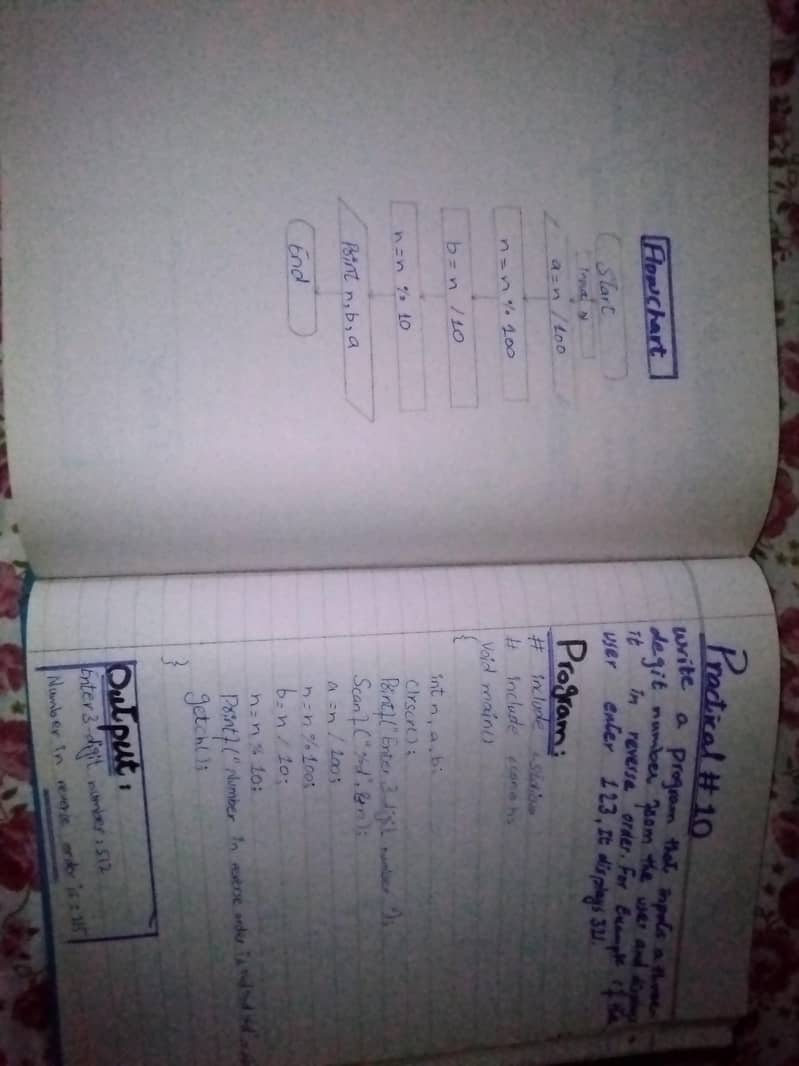 Flowchart
Start
Input N
a = n / 100
n = n % 100
b = n / 10
n = n % 10
Print n, b, a
End
Practical # 10
write a program that inputs a three
degit number from the user and displays
it in reverse order. For Exampt if the
user enter 123, It displays 321.
Program:
# include
# include
Void main()
{
int n, a, b;
clrscr();
Printf("Enter 3 digit number");
Scanf("%d", &n);
a = n / 100;
n = n % 100;
b = n / 10;
n = n % 10;
Printf("Number in reverse order is %d%d%d",
getch();
}
Output:
Enter 3-digit number: 512
Number in reverse order is: 215